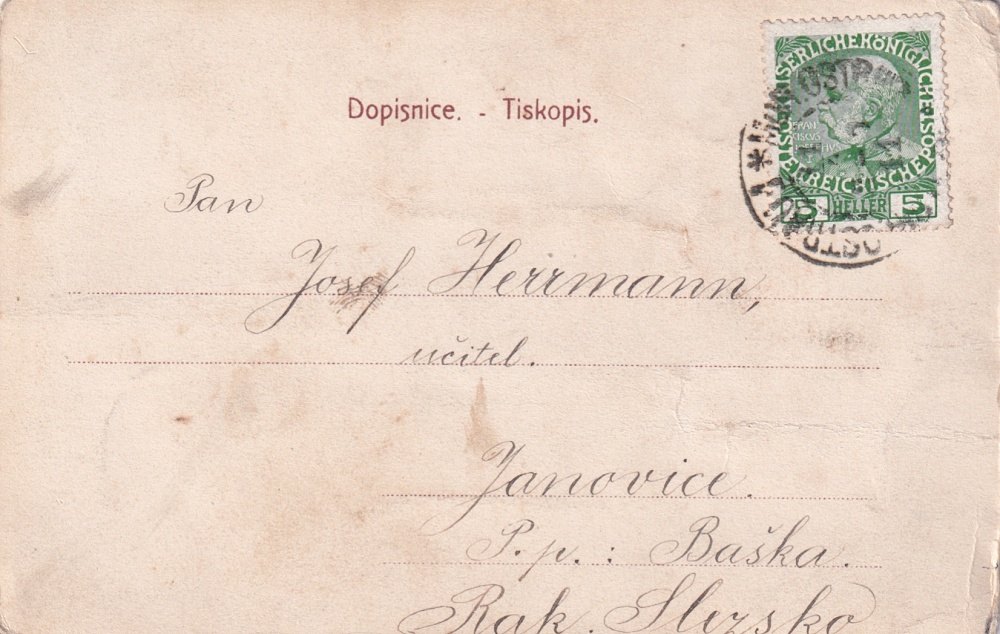 Dopisnice. - Tiskopis.
KAISERLICHE KÖNIGLICHE
ÖSTERREICHISCHE POST
FRAN
CISCVS
5 HELLER 5
Pan
Josef Herrmann,
učitel.
Janovice.
P.p. : Baška.
Rak. Slezsko